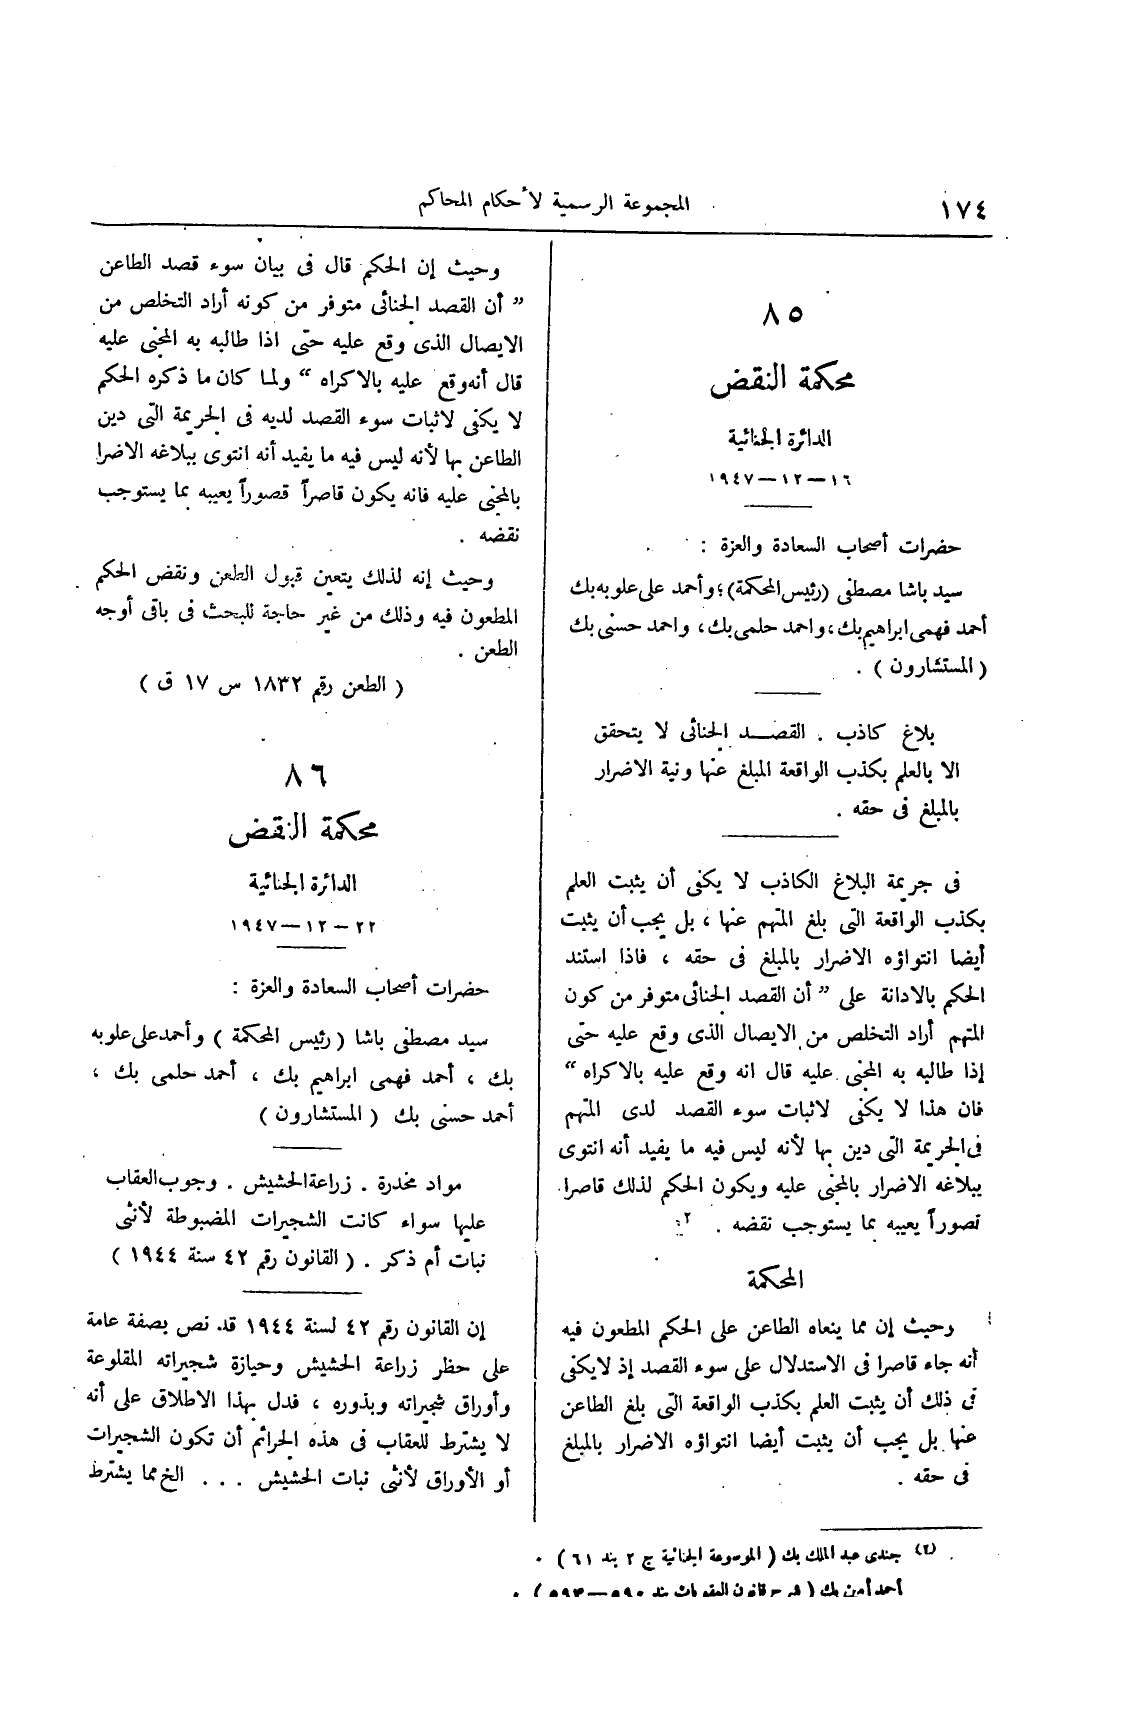 ١٧٤
المجموعة الرسمية لأحكام المحاكم
٨٥
محكمة النقض
الدائرة الجنائية
١٦ – ١٢ – ١٩٤٧
حضرات أصحاب السعادة والعزة :
سيد باشا مصطفى (رئيس المحكمة)؛ وأحمد على علوبه بك
أحمد فهمى ابراهيم بك، واحمد حلمى بك، واحمد حسنى بك
( المستشارون ) .
بلاغ كاذب . القصد الجنائى لا يتحقق
الا بالعلم بكذب الواقعة المبلغ عنها ونية الاضرار
بالمبلغ فى حقه .
فى جريمة البلاغ الكاذب لا يكفى أن يثبت العلم
بكذب الواقعة التى بلغ المتهم عنها ، بل يجب أن يثبت
أيضا انتواؤه الاضرار بالمبلغ فى حقه ، فاذا استند
الحكم بالادانة على ” أن القصد الجنائى متوفر من كون
المتهم أراد التخلص من الايصال الذى وقع عليه حتى
إذا طالبه به المجنى عليه قال انه وقع عليه بالاكراه “
فان هذا لا يكفى لاثبات سوء القصد لدى المتهم
فى الجريمة التى دين بها لأنه ليس فيه ما يفيد أنه انتوى
ببلاغه الاضرار بالمجنى عليه ويكون الحكم لذلك قاصرا
قصوراً يعيبه بما يستوجب نقضه . ٢
المحكمة
وحيث إن مما ينعاه الطاعن على الحكم المطعون فيه
أنه جاء قاصرا فى الاستدلال على سوء القصد إذ لا يكفى
فى ذلك أن يثبت العلم بكذب الواقعة التى بلغ الطاعن
عنها بل يجب أن يثبت أيضا انتواؤه الاضرار بالمبلغ
فى حقه .
(٢) جندى عبد الملك بك ( الموسوعة الجنائية ج ٢ بند ٦١ ) .
أحمد أمين بك ( شرح قانون العقوبات بند ٥٩٠ – ٥٩٣ ) .
وحيث إن الحكم قال فى بيان سوء قصد الطاعن
” أن القصد الجنائى متوفر من كونه أراد التخلص من
الايصال الذى وقع عليه حتى اذا طالبه به المجنى عليه
قال أنه وقع عليه بالاكراه “ ولما كان ما ذكره الحكم
لا يكفى لاثبات سوء القصد لديه فى الجريمة التى دين
الطاعن بها لأنه ليس فيه ما يفيد أنه انتوى ببلاغه الاضرا
بالمجنى عليه فانه يكون قاصراً قصوراً يعيبه بما يستوجب
نقضه .
وحيث إنه لذلك يتعين قبول الطعن ونقض الحكم
المطعون فيه وذلك من غير حاجة للبحث فى باقى أوجه
الطعن .
( الطعن رقم ١٨٣٢ س ١٧ ق )
٨٦
محكمة النقض
الدائرة الجنائية
٢٢ – ١٢ – ١٩٤٧
حضرات أصحاب السعادة والعزة :
سيد مصطفى باشا ( رئيس المحكمة ) وأحمد على علوبه
بك ، أحمد فهمى ابراهيم بك ، أحمد حلمى بك ،
أحمد حسنى بك ( المستشارون )
مواد مخدرة . زراعة الحشيش . وجوب العقاب
عليها سواء كانت الشجيرات المضبوطة لأنثى
نبات أم ذكر . ( القانون رقم ٤٢ سنة ١٩٤٤ )
إن القانون رقم ٤٢ لسنة ١٩٤٤ قد نص بصفة عامة
على حظر زراعة الحشيش وحيازة شجيراته المقلوعة
وأوراق شجيراته وبذوره ، فدل بهذا الاطلاق على أنه
لا يشترط للعقاب فى هذه الجرائم أن تكون الشجيرات
أو الأوراق لأنثى نبات الحشيش . . . الخ مما يشترط